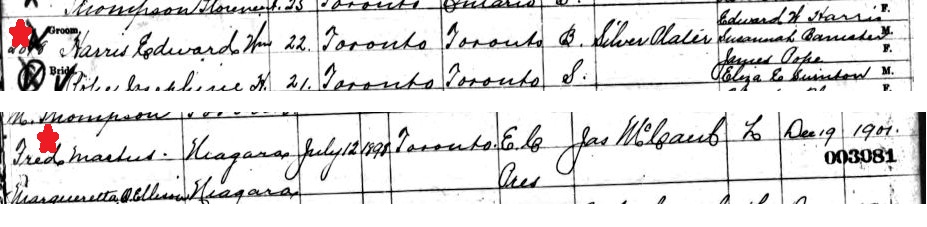 Thompson Florence 23 Toronto Ontario S.
Groom. Harris Edward Wm 22. Toronto Toronto B. Silver Plater Edward W Harris F.
Susannah Banister M.
Bride Pope Josephine H. 21. Toronto Toronto S. James Pope F.
Eliza E M.
M. Thompson
Fred Mastus. Niagara July 12 1898 Toronto. E. C Jas McCaul L Dec 19 1901.
Pres 003081
Margueretta Niagara